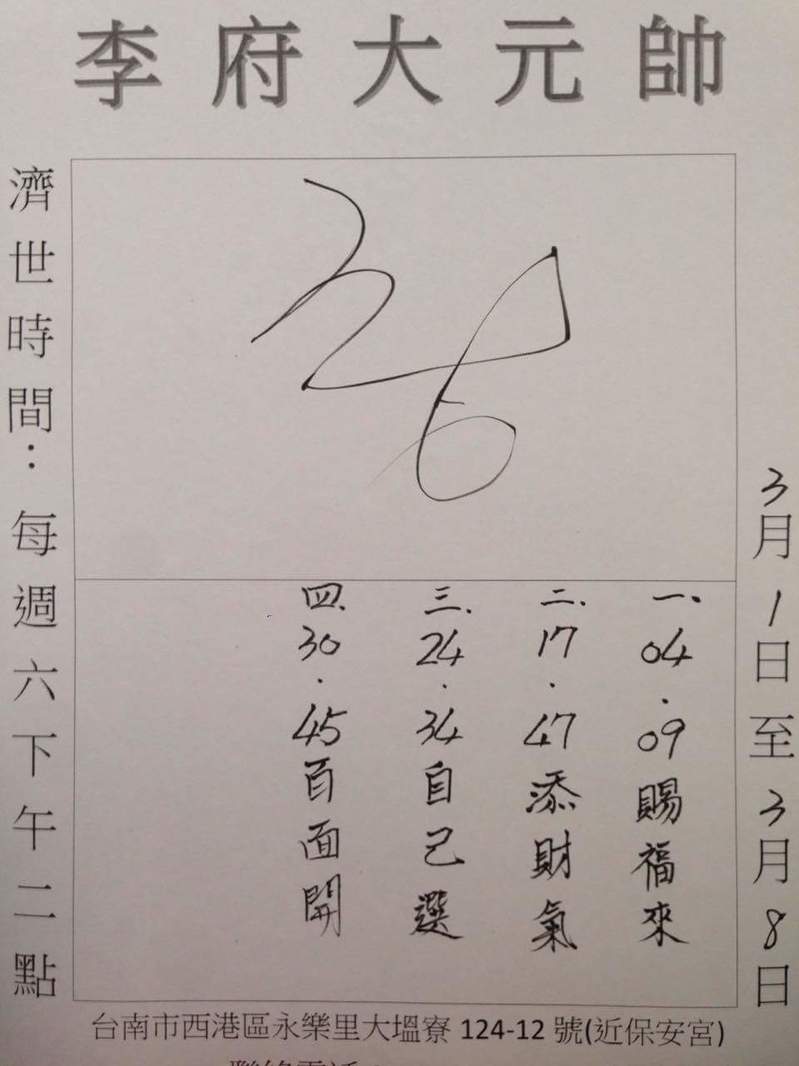 李府大元帥
濟世時間：每週六下午二點
3月1日至3月8日
一、04.09賜福來
二、17.47添財氣
三、24.34自己選
四、30.45百面開
台南市西港區永樂里大塭寮 124-12 號(近保安宮)